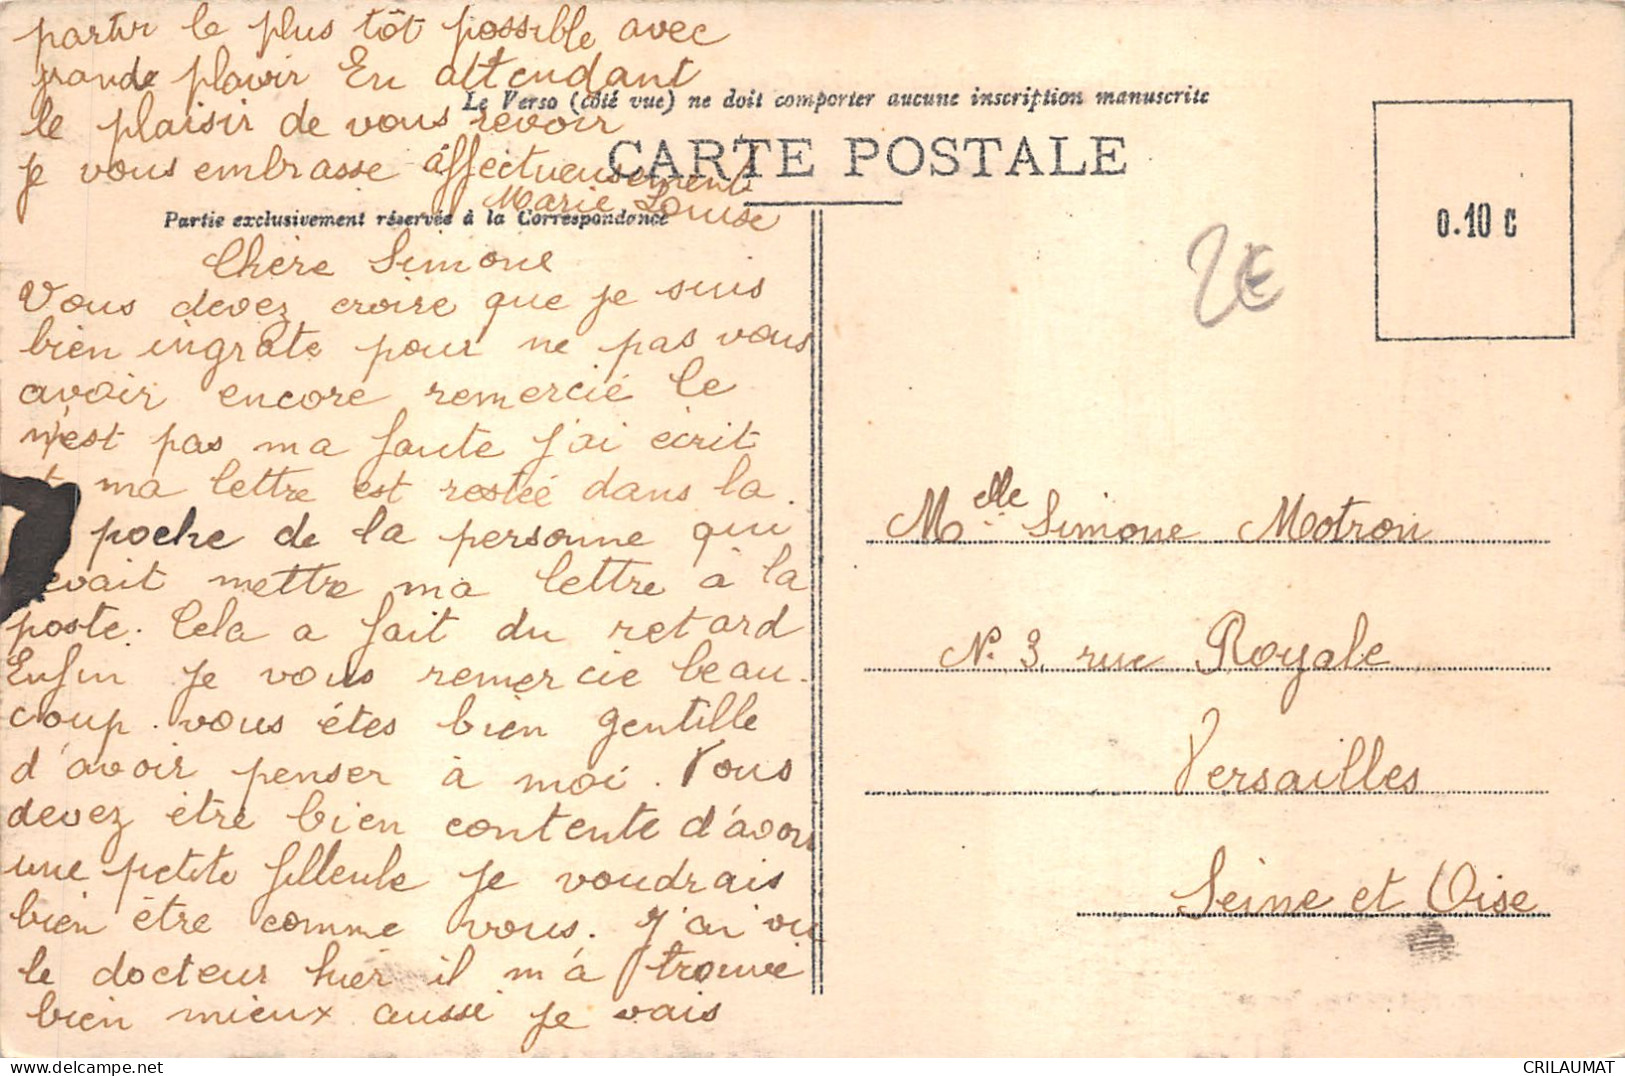 partir le plus tôt possible avec
grande plaisir En attendant
le plaisir de vous revoir
je vous embrasse affectueusement
Marie Louise
Le Verso (côté vue) ne doit comporter aucune inscription manuscrite
CARTE POSTALE
Partie exclusivement réservée à la Correspondance
0.10 C
2€
Chère Simone
Vous devez croire que je suis
bien ingrate pour ne pas vous
avoir encore remercié le
n'est pas ma faute j'ai écrit
ma lettre est restée dans la
poche de la personne qui
devait mettre ma lettre à la
poste. Cela a fait du retard
Enfin je vous remercie beau.
coup. vous étes bien gentille
d'avoir penser à moi. Vous
devez être bien contente d'avoir
une petite filleule je voudrais
bien être comme vous. J'ai vu
le docteur hier il m'a trouvé
bien mieux aussi je vais
Melle Simone Motron
N° 3 rue Royale
Versailles
Seine et Oise
CRILAUMAT